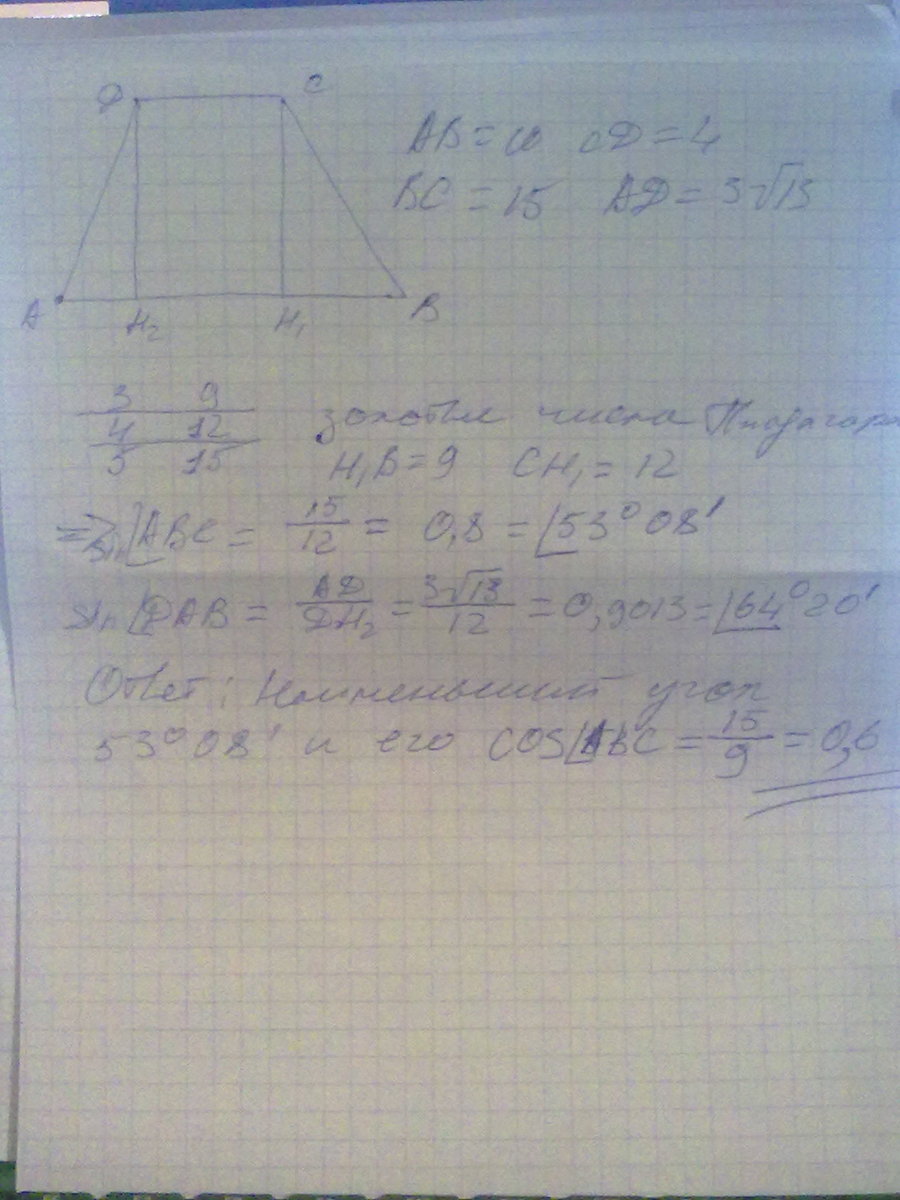 D C
AB = 10 CD = 4
BC = 15 AD = 3√13
A H₂ H₁ B
3 9
4 12
5 15
золотые числа Пифагора
H₁B = 9 CH₁ = 12
=> sin∠ABC = 15/12 = 0,8 = ∠53° 08'
sin∠DAB = AD/DH₂ = 3√13/12 = 0,9013 = ∠64° 20'
Ответ: Наименьший угол
53° 08' и его cos∠ABC = 15/9 = 0,6